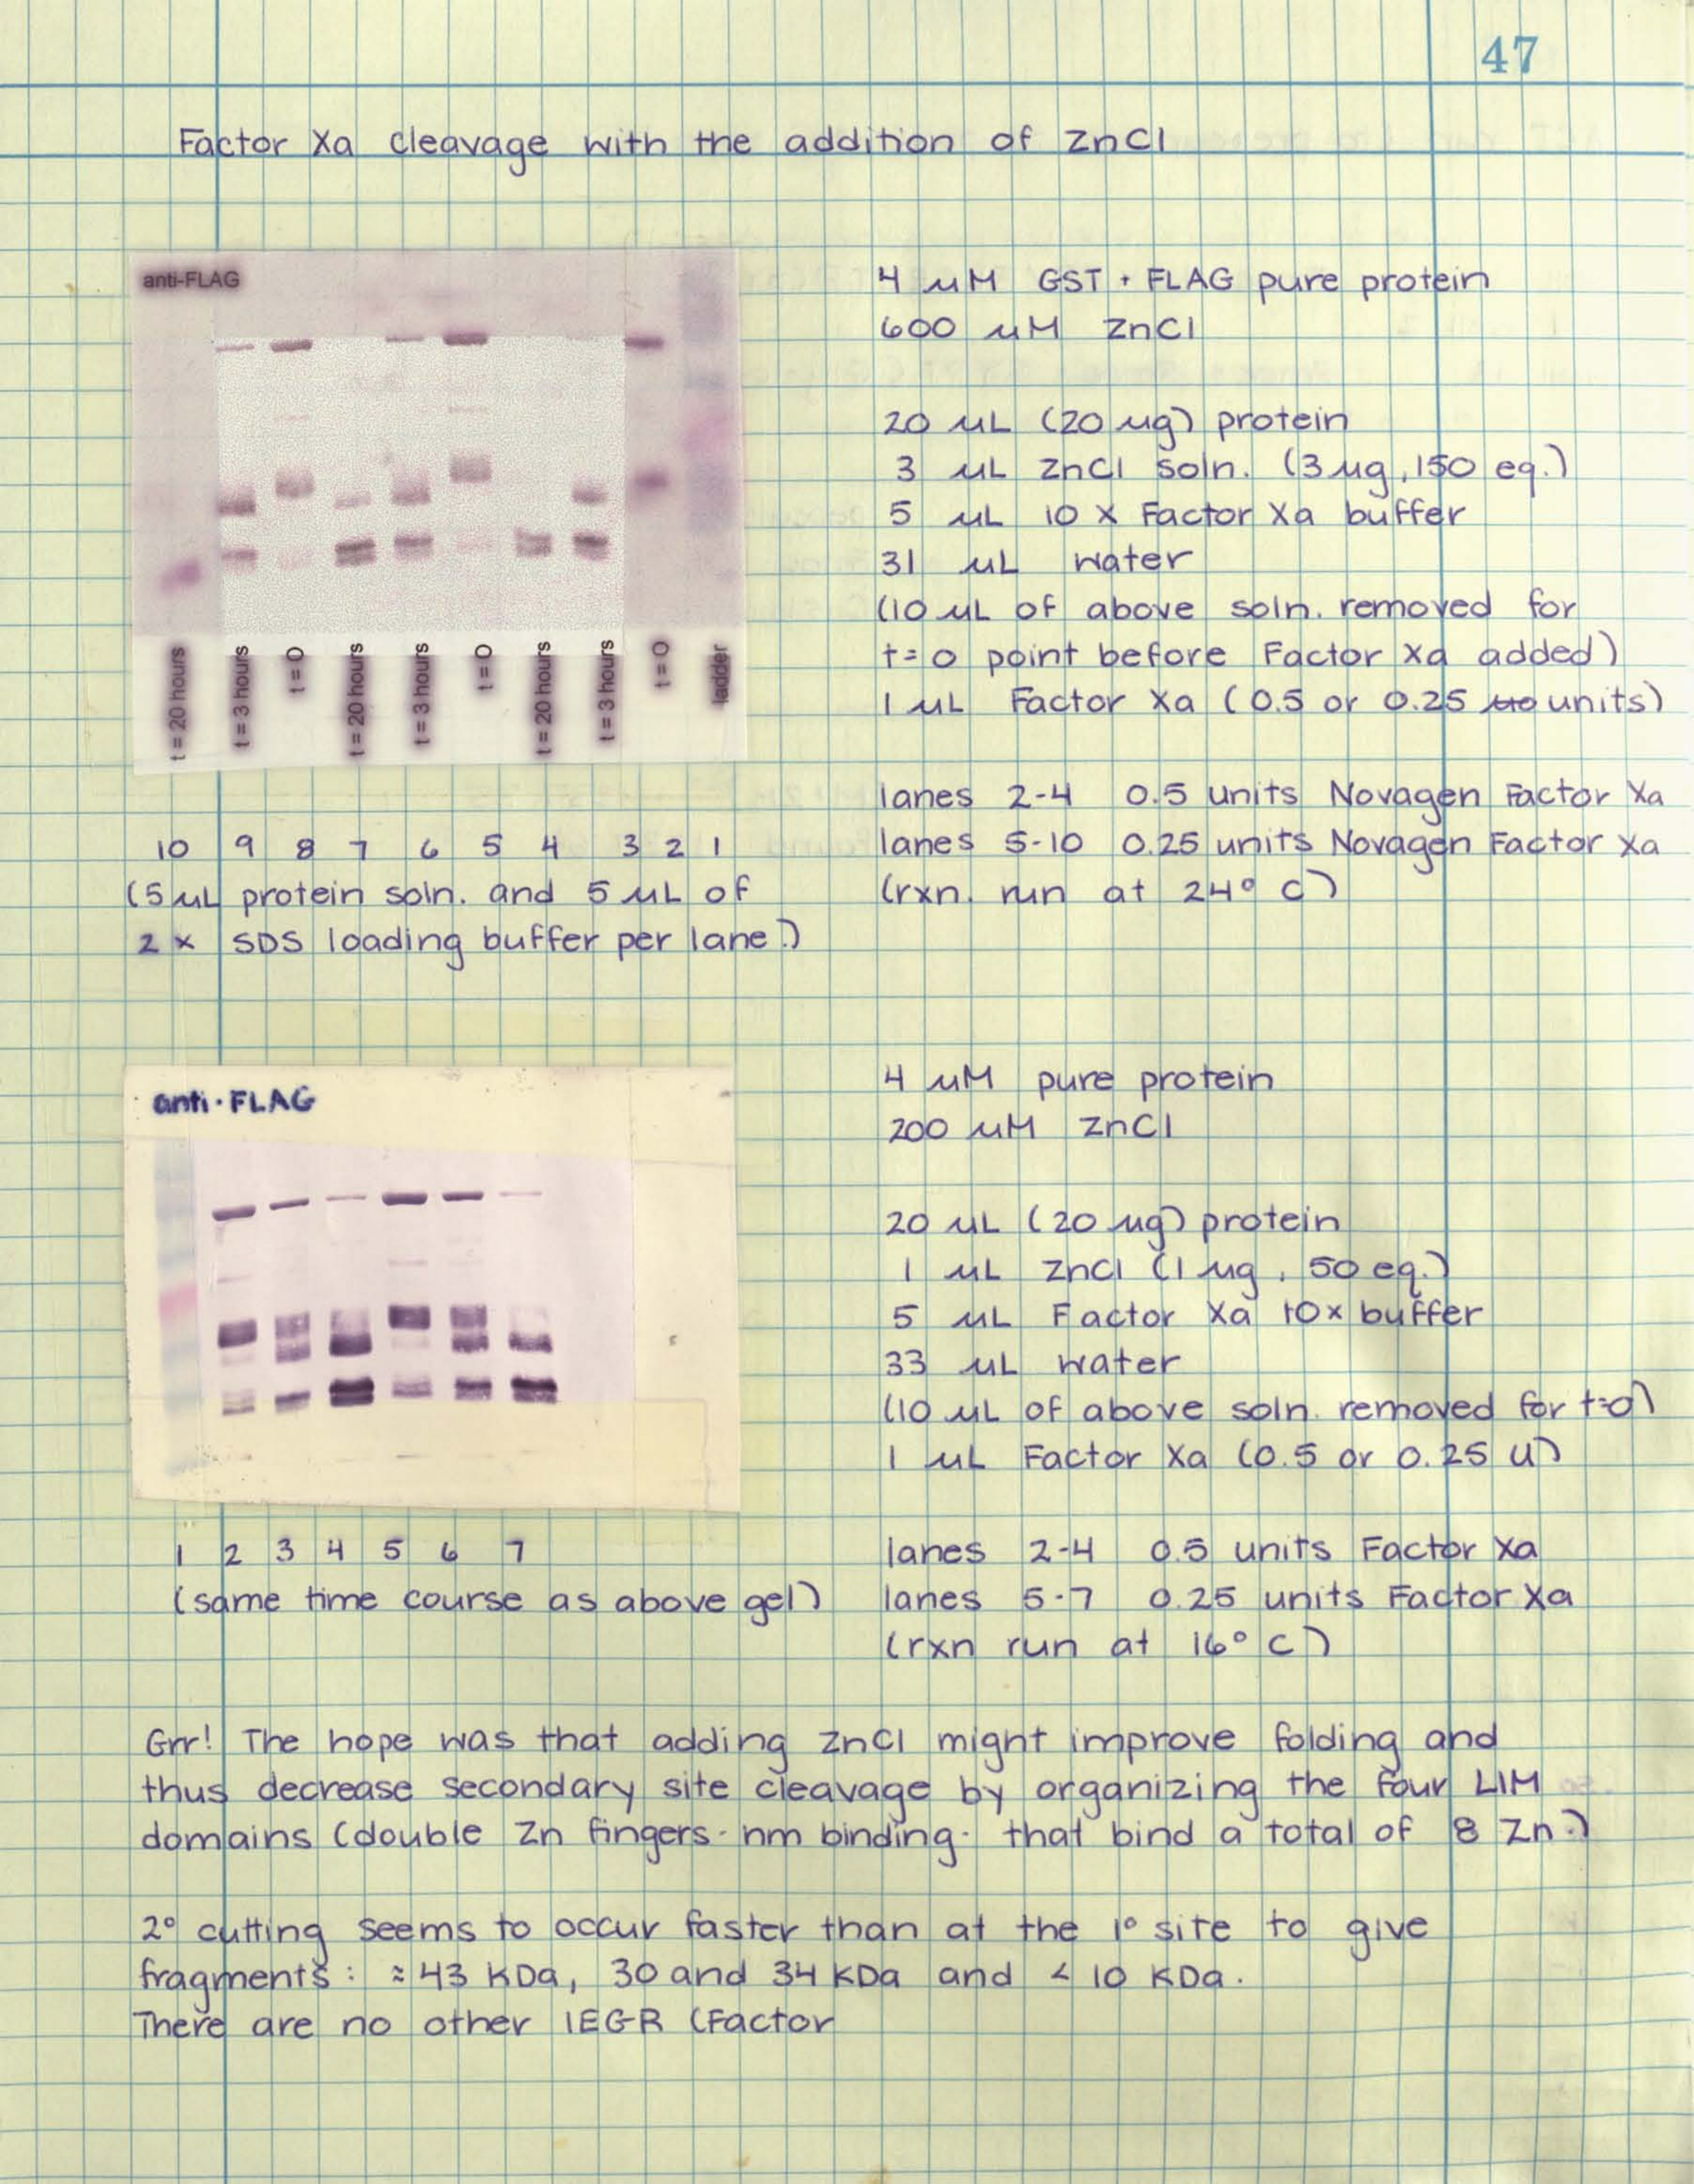 47
Factor Xa cleavage with the addition of ZnCl
anti-FLAG
t = 20 hours
t = 3 hours
t = 0
t = 20 hours
t = 3 hours
t = 0
t = 20 hours
t = 3 hours
t = 0
ladder
10 9 8 7 6 5 4 3 2 1
(5 µL protein soln. and 5 µL of
2 x SDS loading buffer per lane.)
4 µM GST + FLAG pure protein
600 µM ZnCl
20 µL (20 µg) protein
3 µL ZnCl soln. (3 µg, 150 eq.)
5 µL 10 x Factor Xa buffer
31 µL water
(10 µL of above soln. removed for
t=0 point before Factor Xa added)
1 µL Factor Xa (0.5 or 0.25 units)
lanes 2-4 0.5 units Novagen Factor Xa
lanes 5-10 0.25 units Novagen Factor Xa
(rxn. run at 24° C)
anti-FLAG
1 2 3 4 5 6 7
(same time course as above gel)
4 µM pure protein
200 µM ZnCl
20 µL (20 µg) protein
1 µL ZnCl (1 µg, 50 eq.)
5 µL Factor Xa 10x buffer
33 µL water
(10 µL of above soln. removed for t=0)
1 µL Factor Xa (0.5 or 0.25 U)
lanes 2-4 0.5 units Factor Xa
lanes 5-7 0.25 units Factor Xa
(rxn run at 16° C)
Grr! The hope was that adding ZnCl might improve folding and
thus decrease secondary site cleavage by organizing the four LIM
domains (double Zn fingers - nm binding - that bind a total of 8 Zn.)
2° cutting seems to occur faster than at the 1° site to give
fragments: ≈ 43 KDa, 30 and 34 KDa and < 10 KDa.
There are no other IEGR (Factor